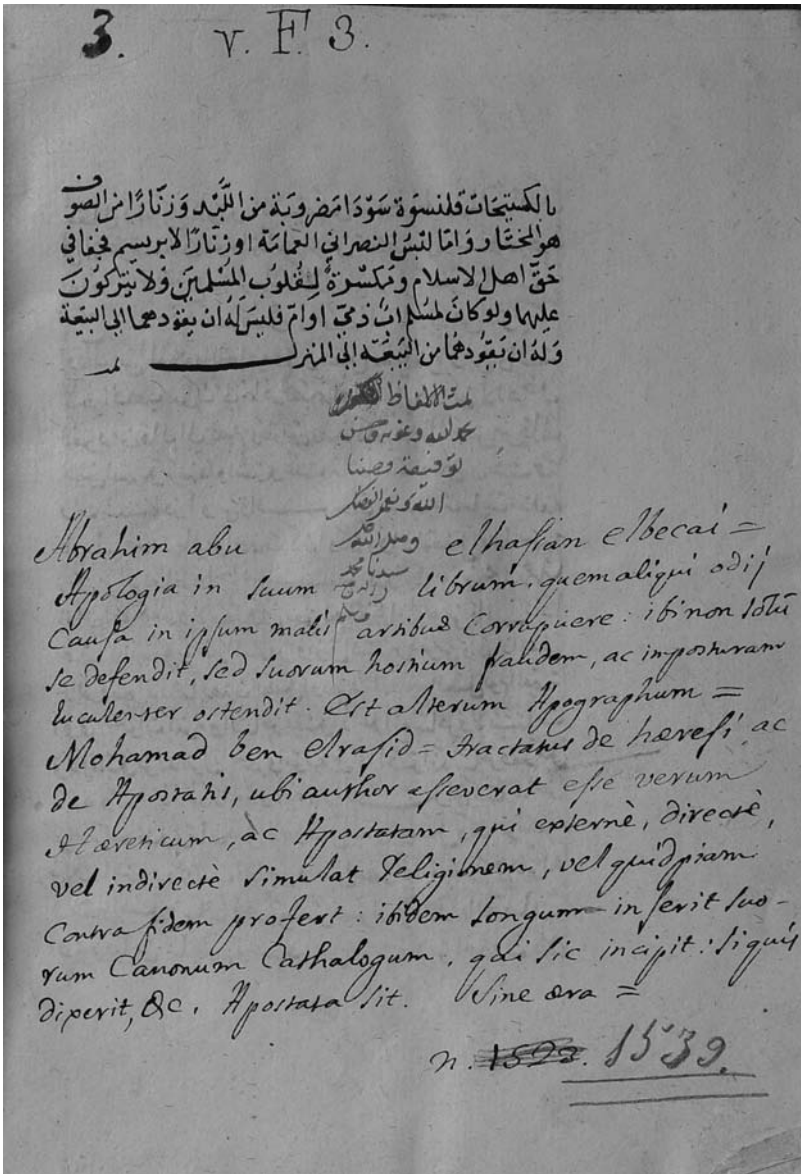 3. v. F. 3.
بالكستيجات قلنسوة سَوْدَا مَضروبَة من اللَّبْد وَزنّارًا من الصوف
هو المختار وَامّا لبْسُ النصراني العمامَة اوزنّارًا لابريسم فجفا في
حَقّ اهل الاسلام ومَكسَرةٌ لِقُلوُب المُسْلمينَ وَلا يتركوُنَ
عليها ولو كانَ لمسْلم ابٌ ذميّ او امّ فليسَ لَهُ ان يقوُدهما الى البيعَة
وَلهُ ان يَقوُدهُما من البَيعَة الى المنزل
تمت الالفاظ
الله ونعم
وصلى الله على
سيدنا محمد
وسلم
Abrahim abu elhassan elbecai =
Apologia in suum librum, quem aliqui odij
Causa in ipsum malis artibus Corrupuere: ibi non solũ
se defendit, sed suorum hostium fraudem, ac imposturam
luculenter ostendit. Est alterum Apographum =
Mohamad ben elrasid = tractatus de hæresi, ac
de Apostatis, ubi author asseverat esse verum
Hæreticum, ac Apostatam, qui externè, directè,
vel indirectè simulat Religionem, vel quidpiam
Contra fidem profert: ibidem longum inserit suo-
rum Canonum Cathalogum, qui sic incipit: si quis
dixerit, &c. Apostata sit. Sine æra =
n. 1539.